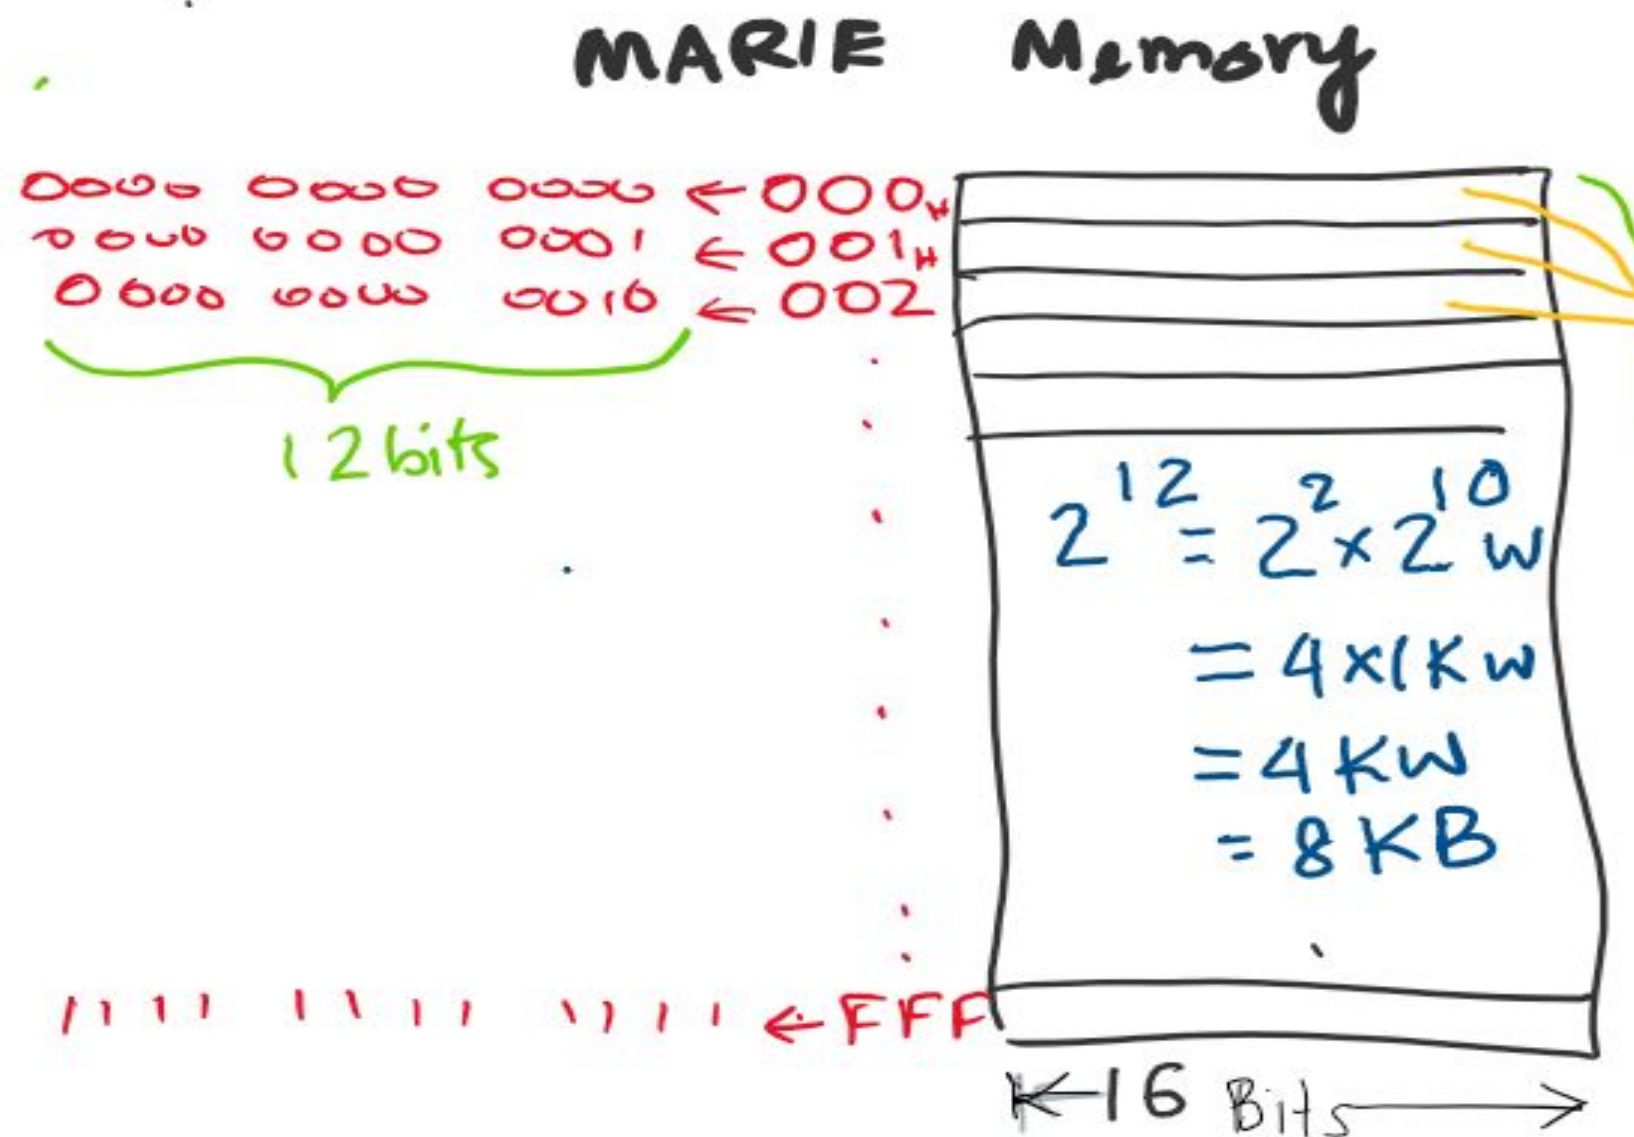 MARIE Memory
0000 0000 0000 ← 000H
0000 0000 0001 ← 001H
0000 0000 0010 ← 002
12 bits
2^12 = 2^2 x 2^10 W
= 4 x 1 K W
= 4 K W
= 8 K B
1111 1111 1111 ← FFF
16 Bits